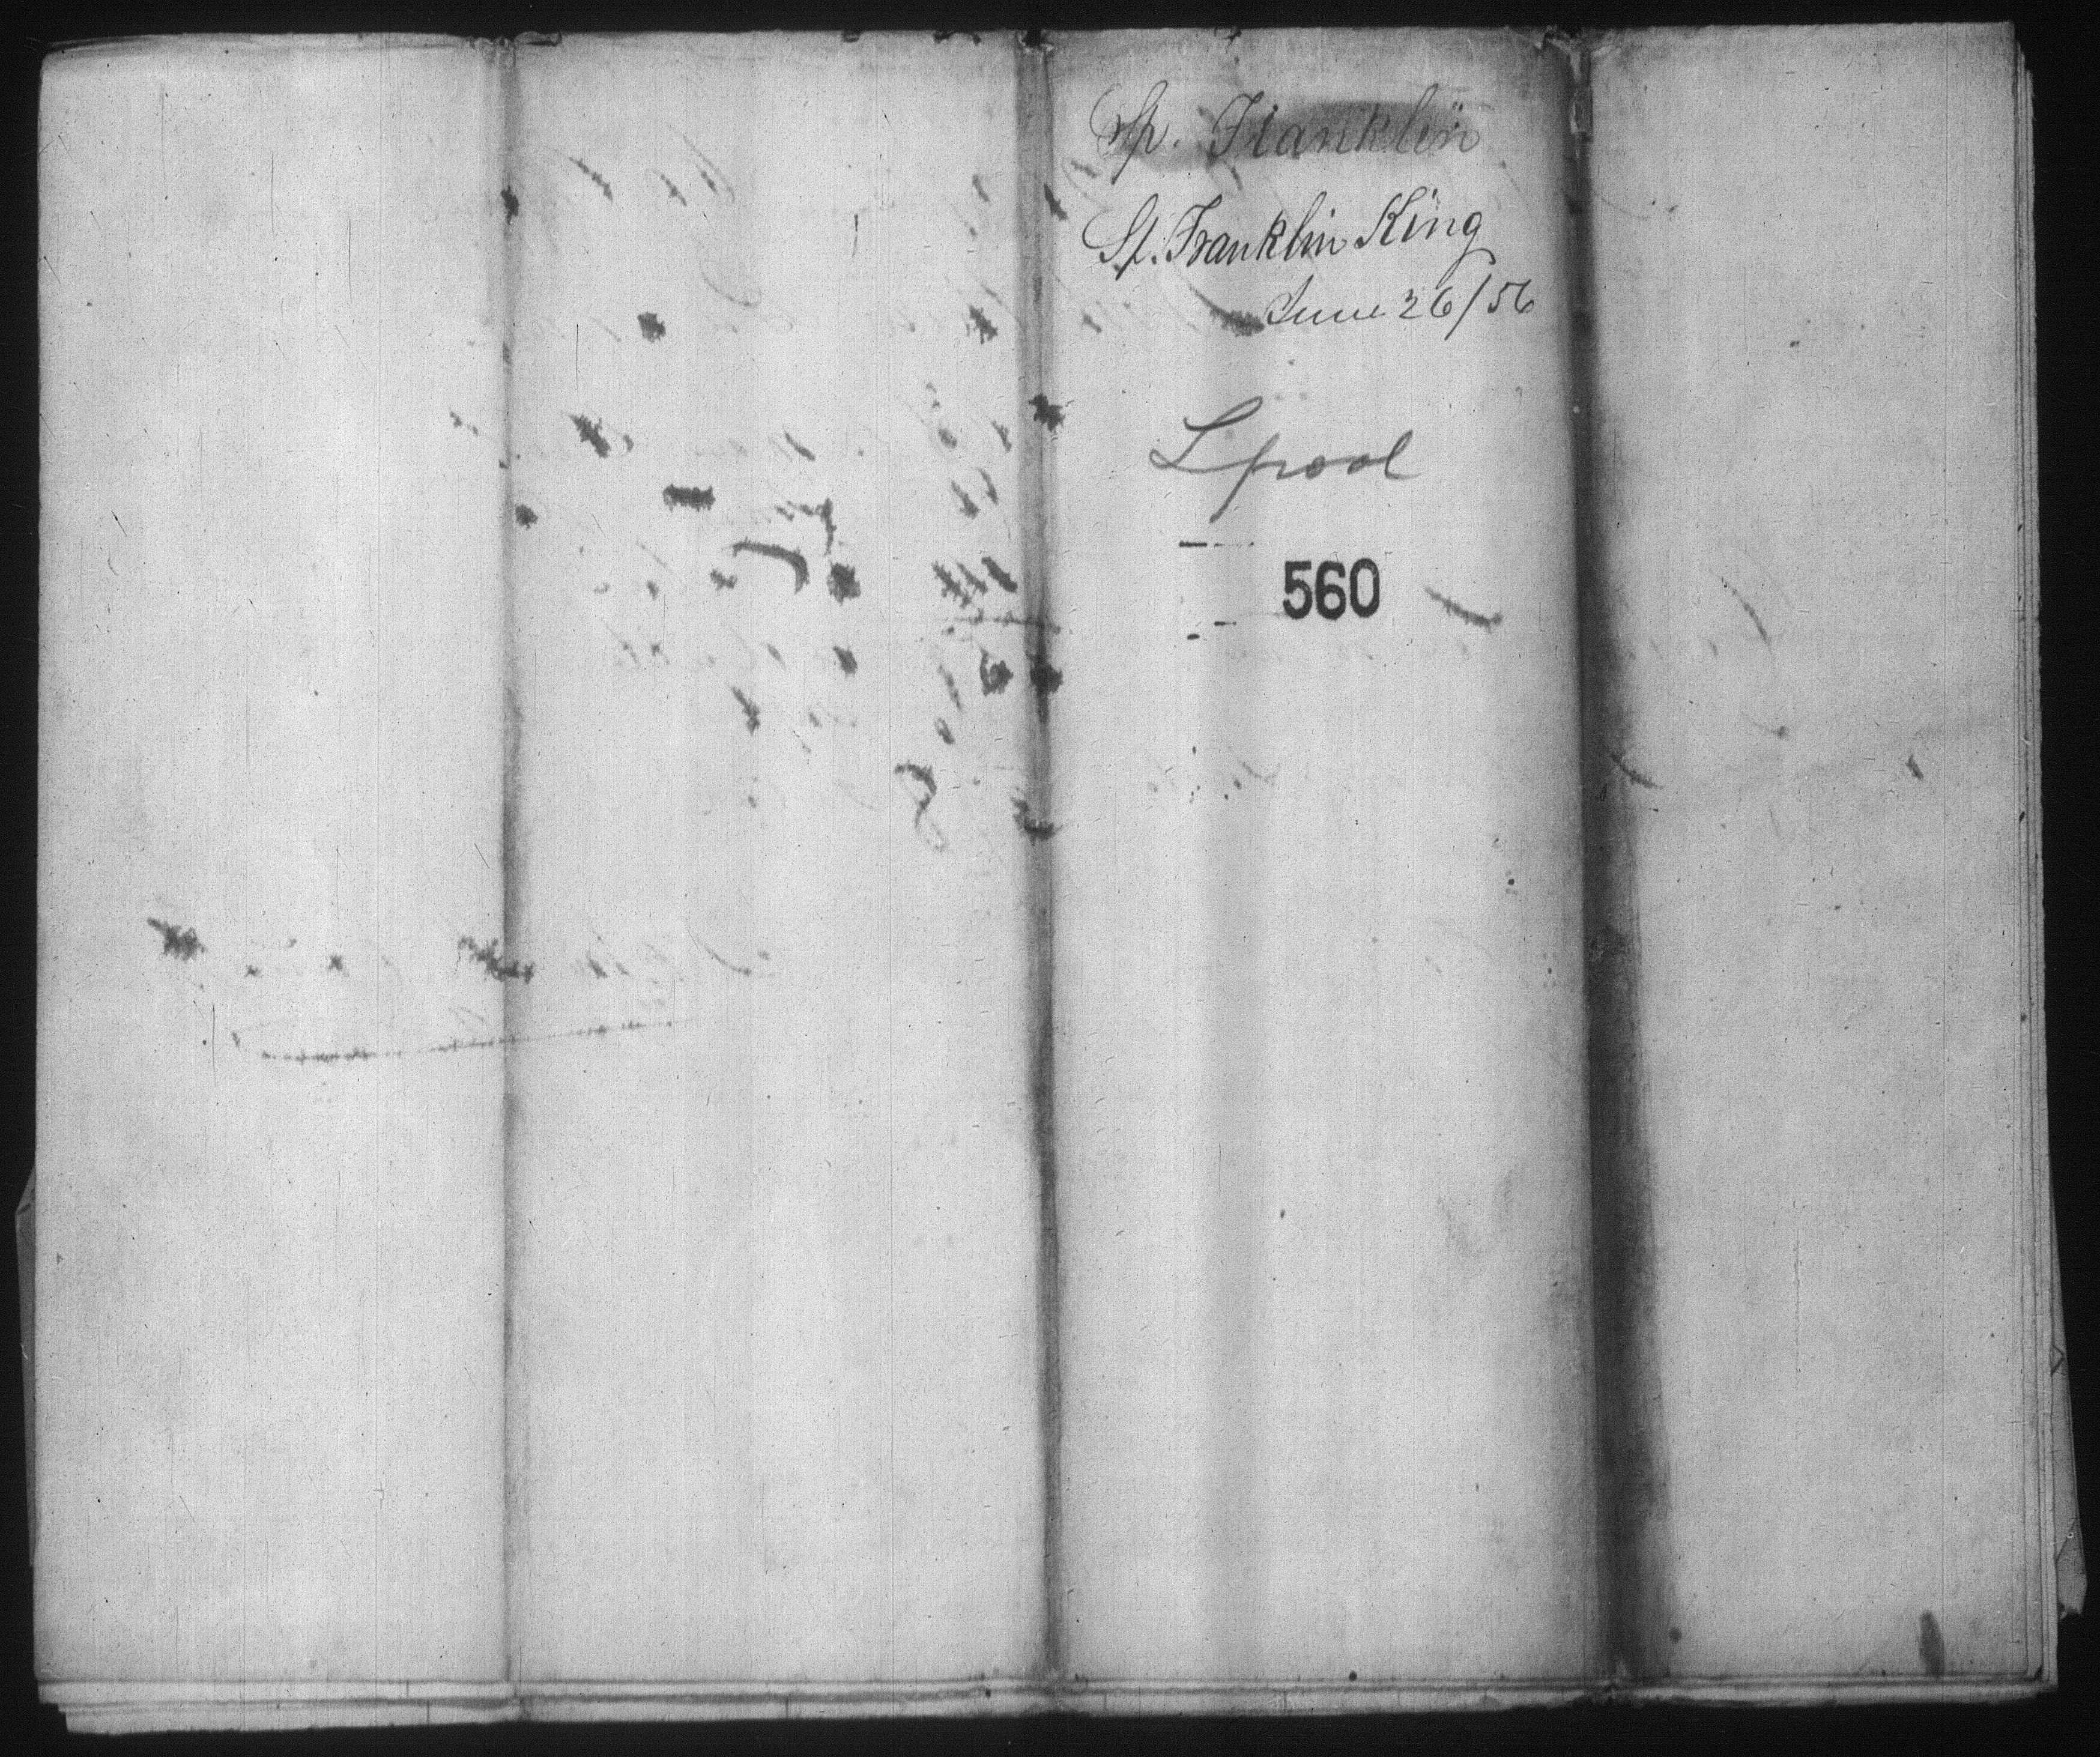 Sp. Franklin
Sp. Franklin King
June 26/56
Lpool
560